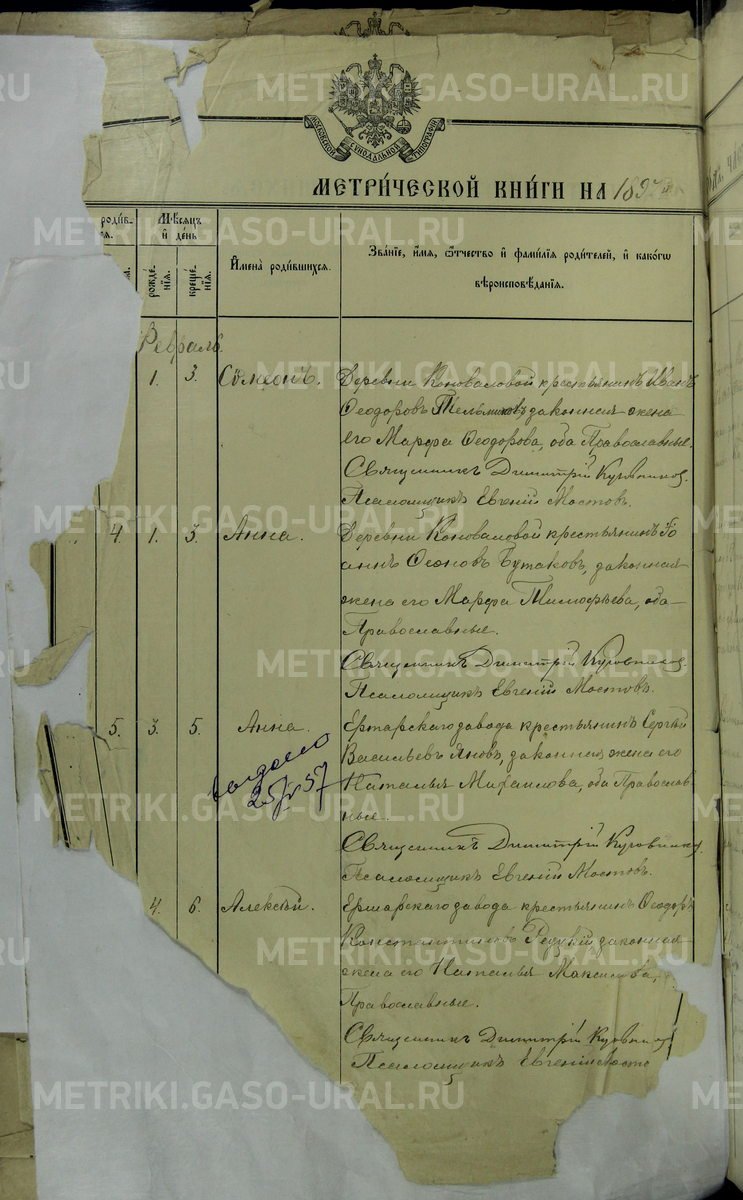 МОСКОВСКОЙ СѴНОДАЛЬНОЙ ТИПОГРАФІИ
МЕТРИ́ЧЕСКОЙ КНИ́ГИ НА 1897
роди́в
ся.
М҄ѣсяцъ
и҆ де́нь
рожде́нїя.
креще́нїя.
И҆мена̀ роди́вшихся.
Зва́нїе, и҆́мя, ѻ҆́тчество и҆ фами́лїя роди́телей, и҆ како́гѡ
вѣроисповѣ́данїя.
Февраль
1. 3. Сѵмеонъ. Деревни Коноваловой крестьянинъ Иванъ
Ѳеодоровъ законная жена
его Марѳа Ѳеодорова, оба Православные.
Священникъ Димитрій Кузовников.
Псаломщикъ Евгеній Мостовъ.
4. 1. 3. Анна. Деревни Коноваловой крестьянинъ Іо
аннъ Бутаковъ, законная
жена его Марѳа Тимоѳѣева, оба
Православные.
Священникъ Димитрій Кузовников.
Псаломщикъ Евгеній Мостовъ.
5. 3. 5. Анна. Ертарскаго завода крестьянинъ Сергѣй
Васильевъ Яновъ, законная жена его
Наталья Михаилова, оба Православ
ные.
выдано
57
Священникъ Димитрій Кузовников.
Псаломщикъ Евгеній Мостовъ.
4. 6. Алексѣй. Ертарскаго завода крестьянинъ Ѳеодоръ
Константиновъ Редукій законная
жена его Наталья Максимова,
Православные.
Священникъ Димитрій Кузовник
Псаломщикъ Евгеній Мосто
METRIKI.GASO-URAL.RU